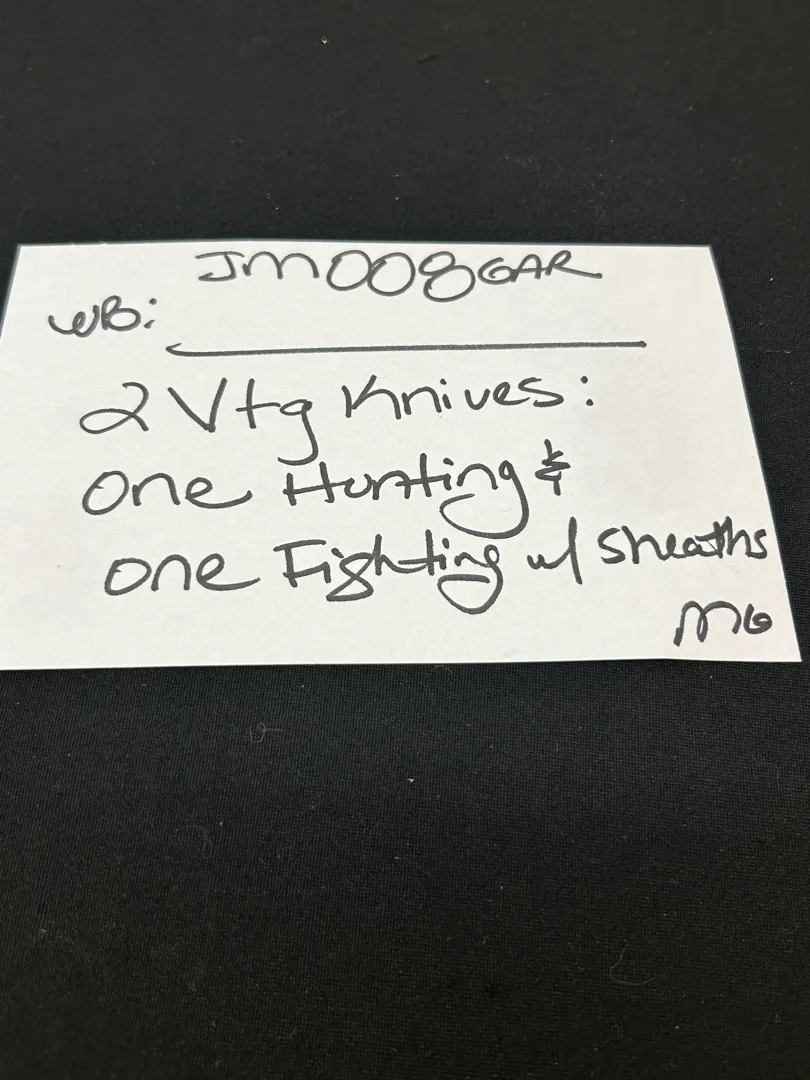 JM008GAR
WB:
2 Vtg Knives:
one Hunting &
one Fighting w/ sheaths
MG